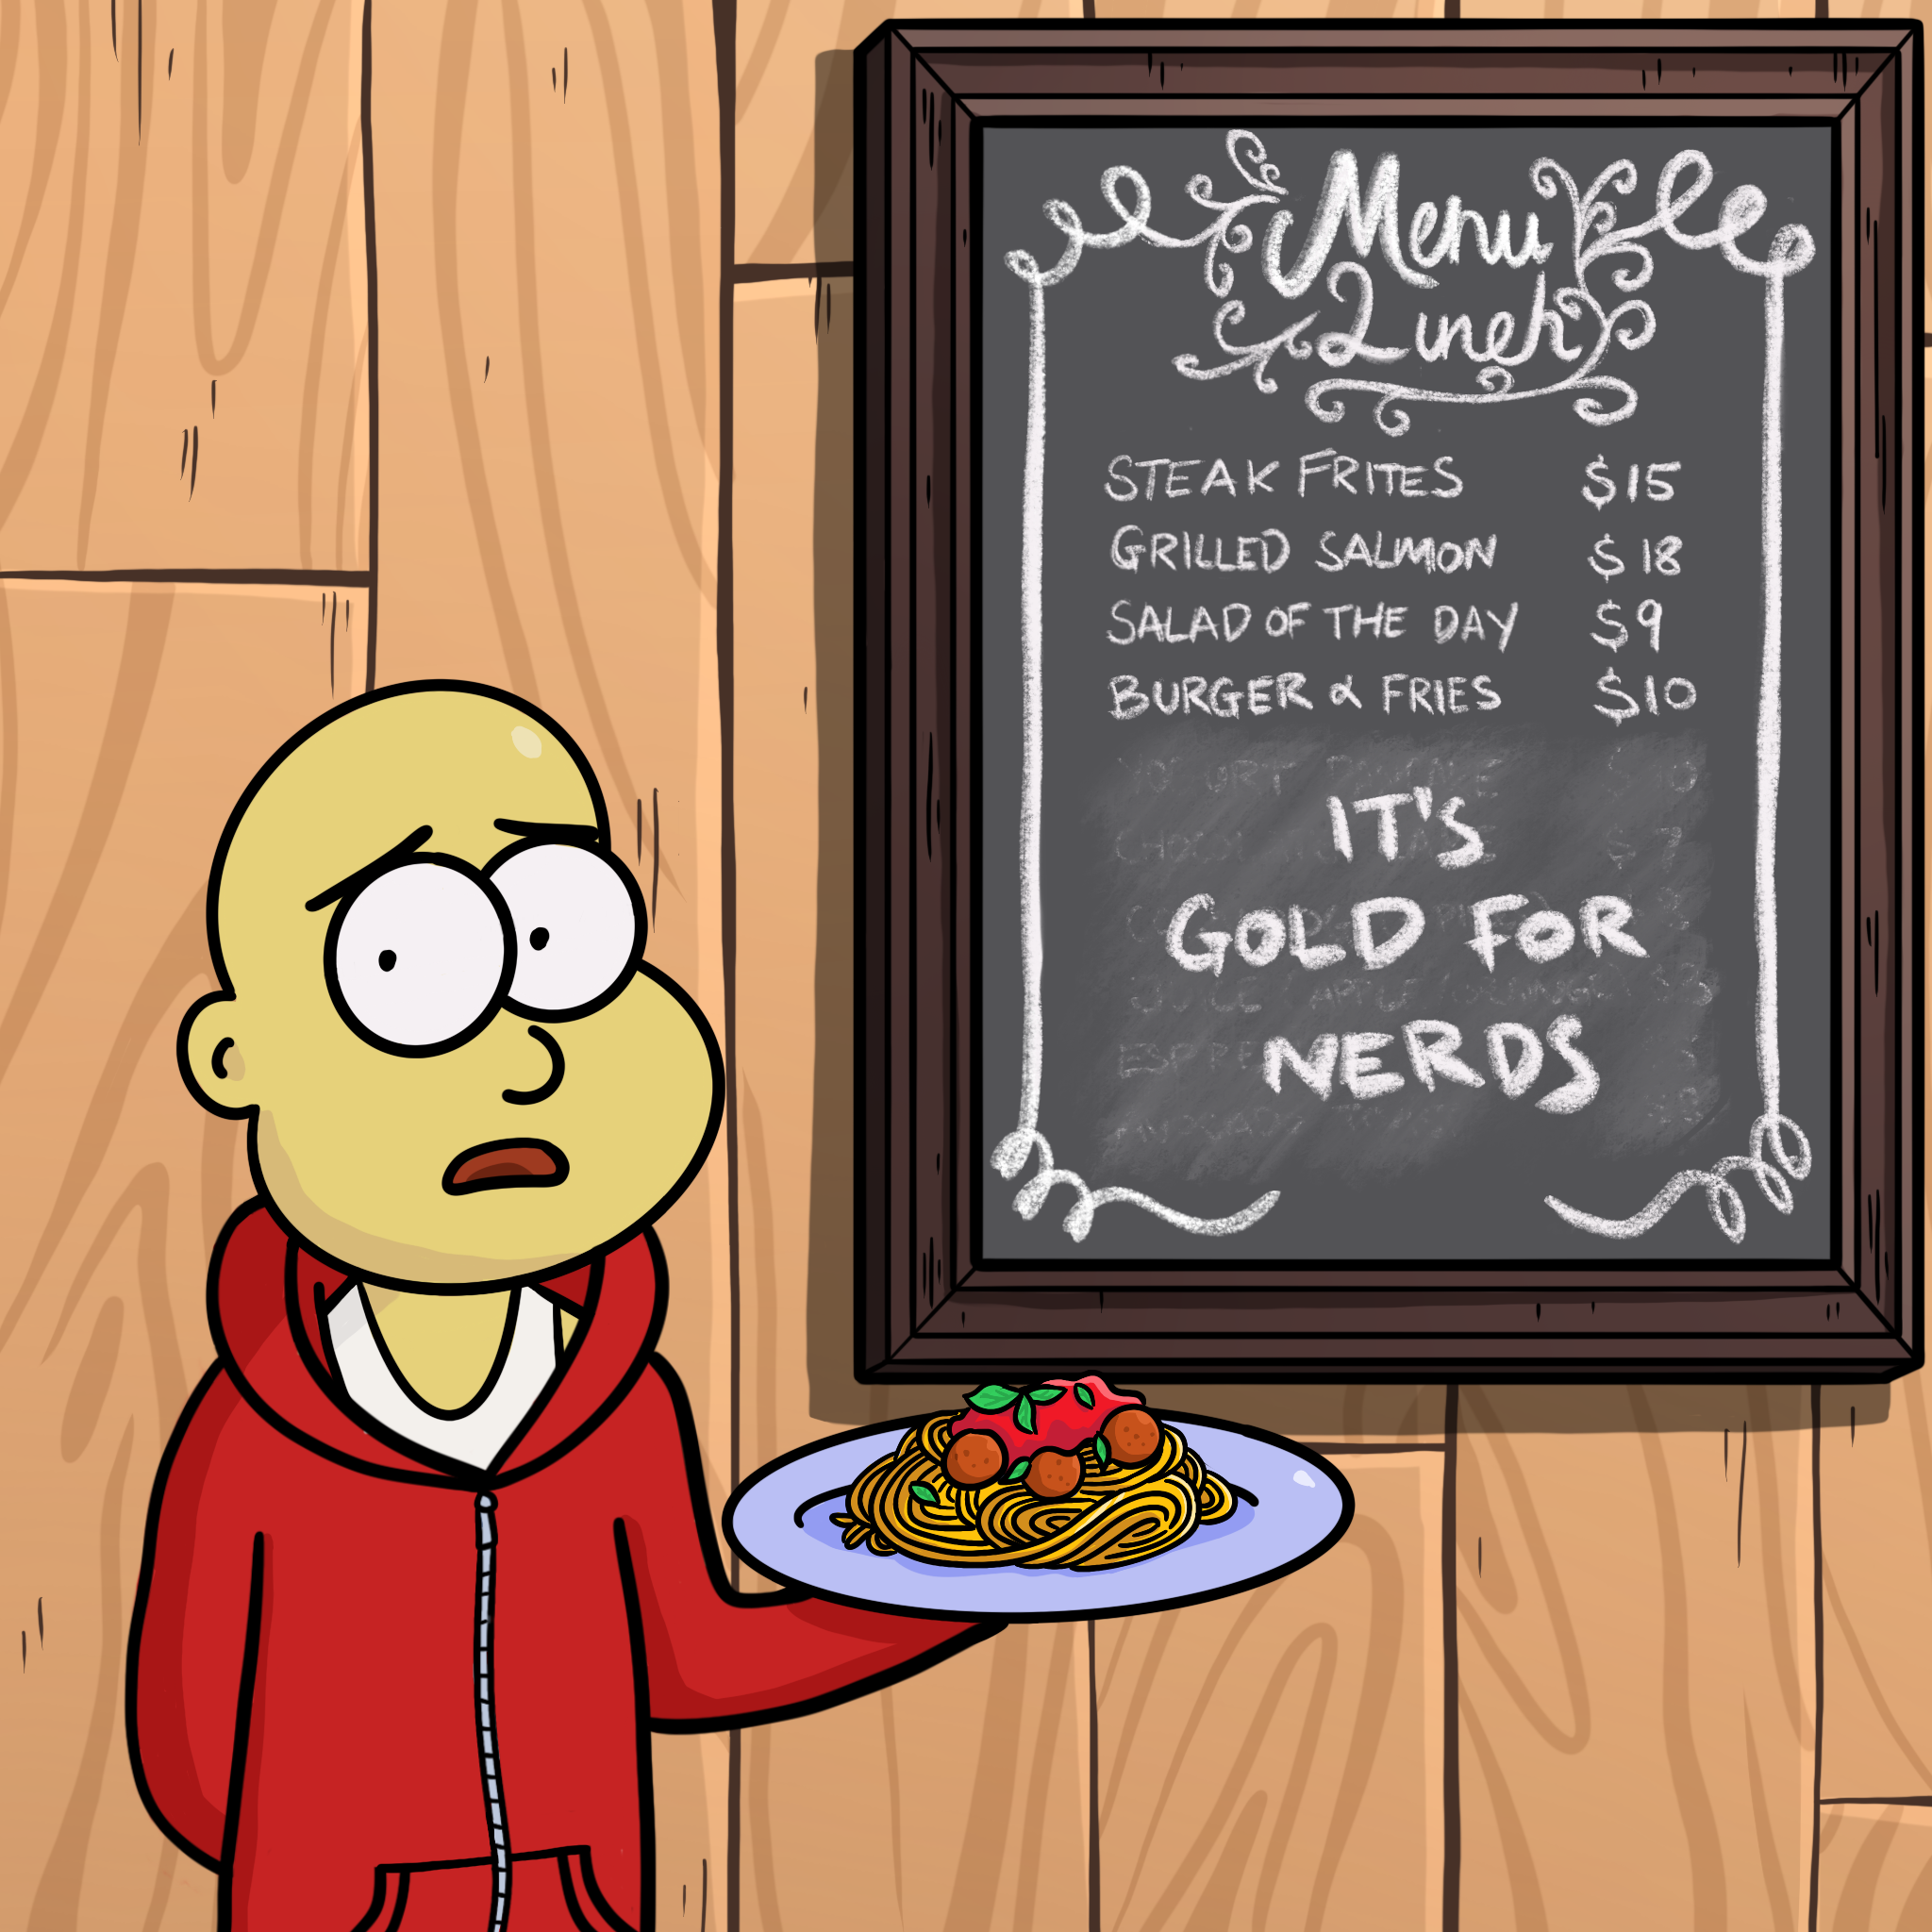 Menu
Lunch
STEAK FRITES $15
GRILLED SALMON $18
SALAD OF THE DAY $9
BURGER & FRIES $10
IT'S
GOLD FOR
NERDS